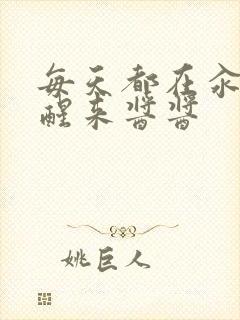 每天都在汆
醒来酱酱
姚巨人